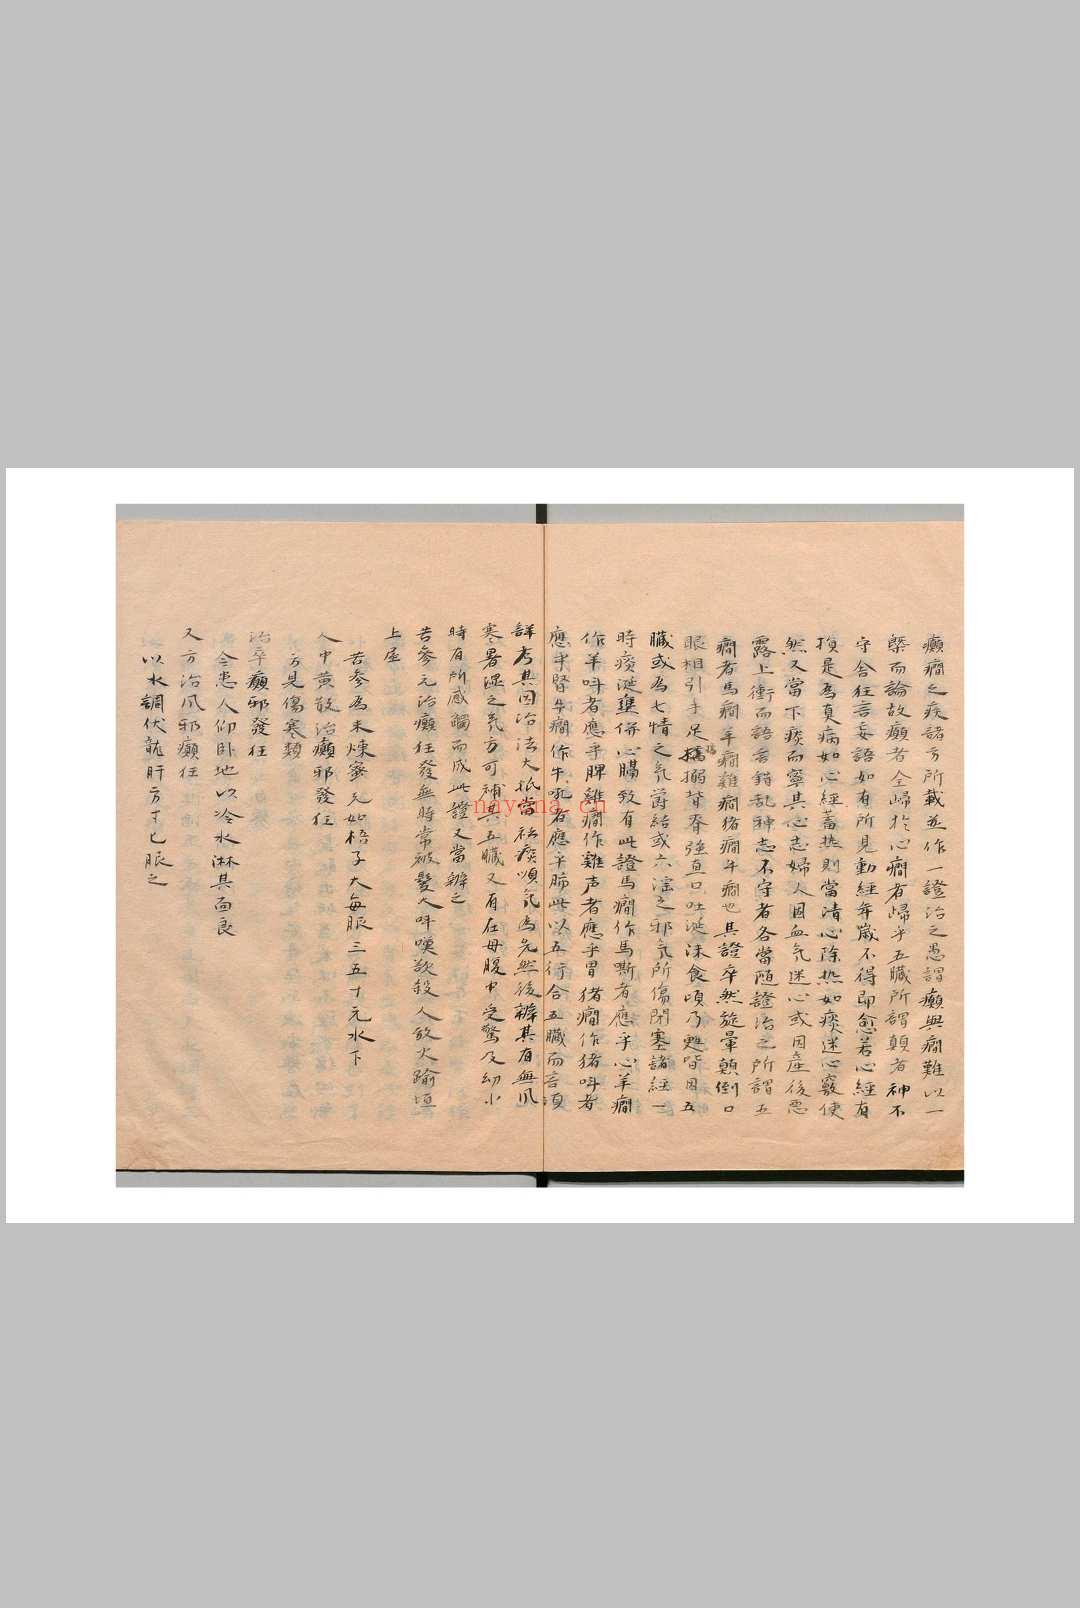 癲癇之疾諸方所載並作一證治之愚謂癲與癇難以一
槩而論故癲者全歸扵心癇者歸乎五臟所謂顛者神不
守舍狂言妄語如有所見動經年歲不得即愈若心經有
損是為真病如心經蓄热則當清心除热如痰迷心竅便
然又當下痰而寧其心志婦人因血気迷心或因産後悪
露上衝而語言錯乱神志不守者各當随證治之所謂五
癇者馬癇羊癇雞癇猪癇牛癇也其證卒然旋暈顛倒口
眼相引手足搐搦背脊強直口吐涎沫食頃乃甦皆因五
臟或為七情之気欝結或六淫之邪気所傷閉塞諸經一
時痰涎壅併心膈致有此證馬癇作馬嘶者應乎心羊癇
作羊呌者應乎脾雞癇作雞声者應乎胃猪癇作猪呌者
應乎腎牛癇作牛吼者應乎肺此以五行合五臟而言須
詳考其因治法大抵當祛痰順気為先然後辨其有無风
寒暑湿之気方可補其五臟又有在母腹中受驚及幼小
時有所感觸而成此證又當辨之
苦參元治癲狂發無時常被髮大呌嘆欲殺人放火踰垣
上屋
苦参為末煉蜜元如梧子大每服三五十元水下
人中黄散治癲邪發狂
方見傷寒類
治卒癲邪發狂
令患人仰卧地以冷水淋其面良
又方治风邪癲狂
以水調伏龍肝方寸匕服之
nayona.cn